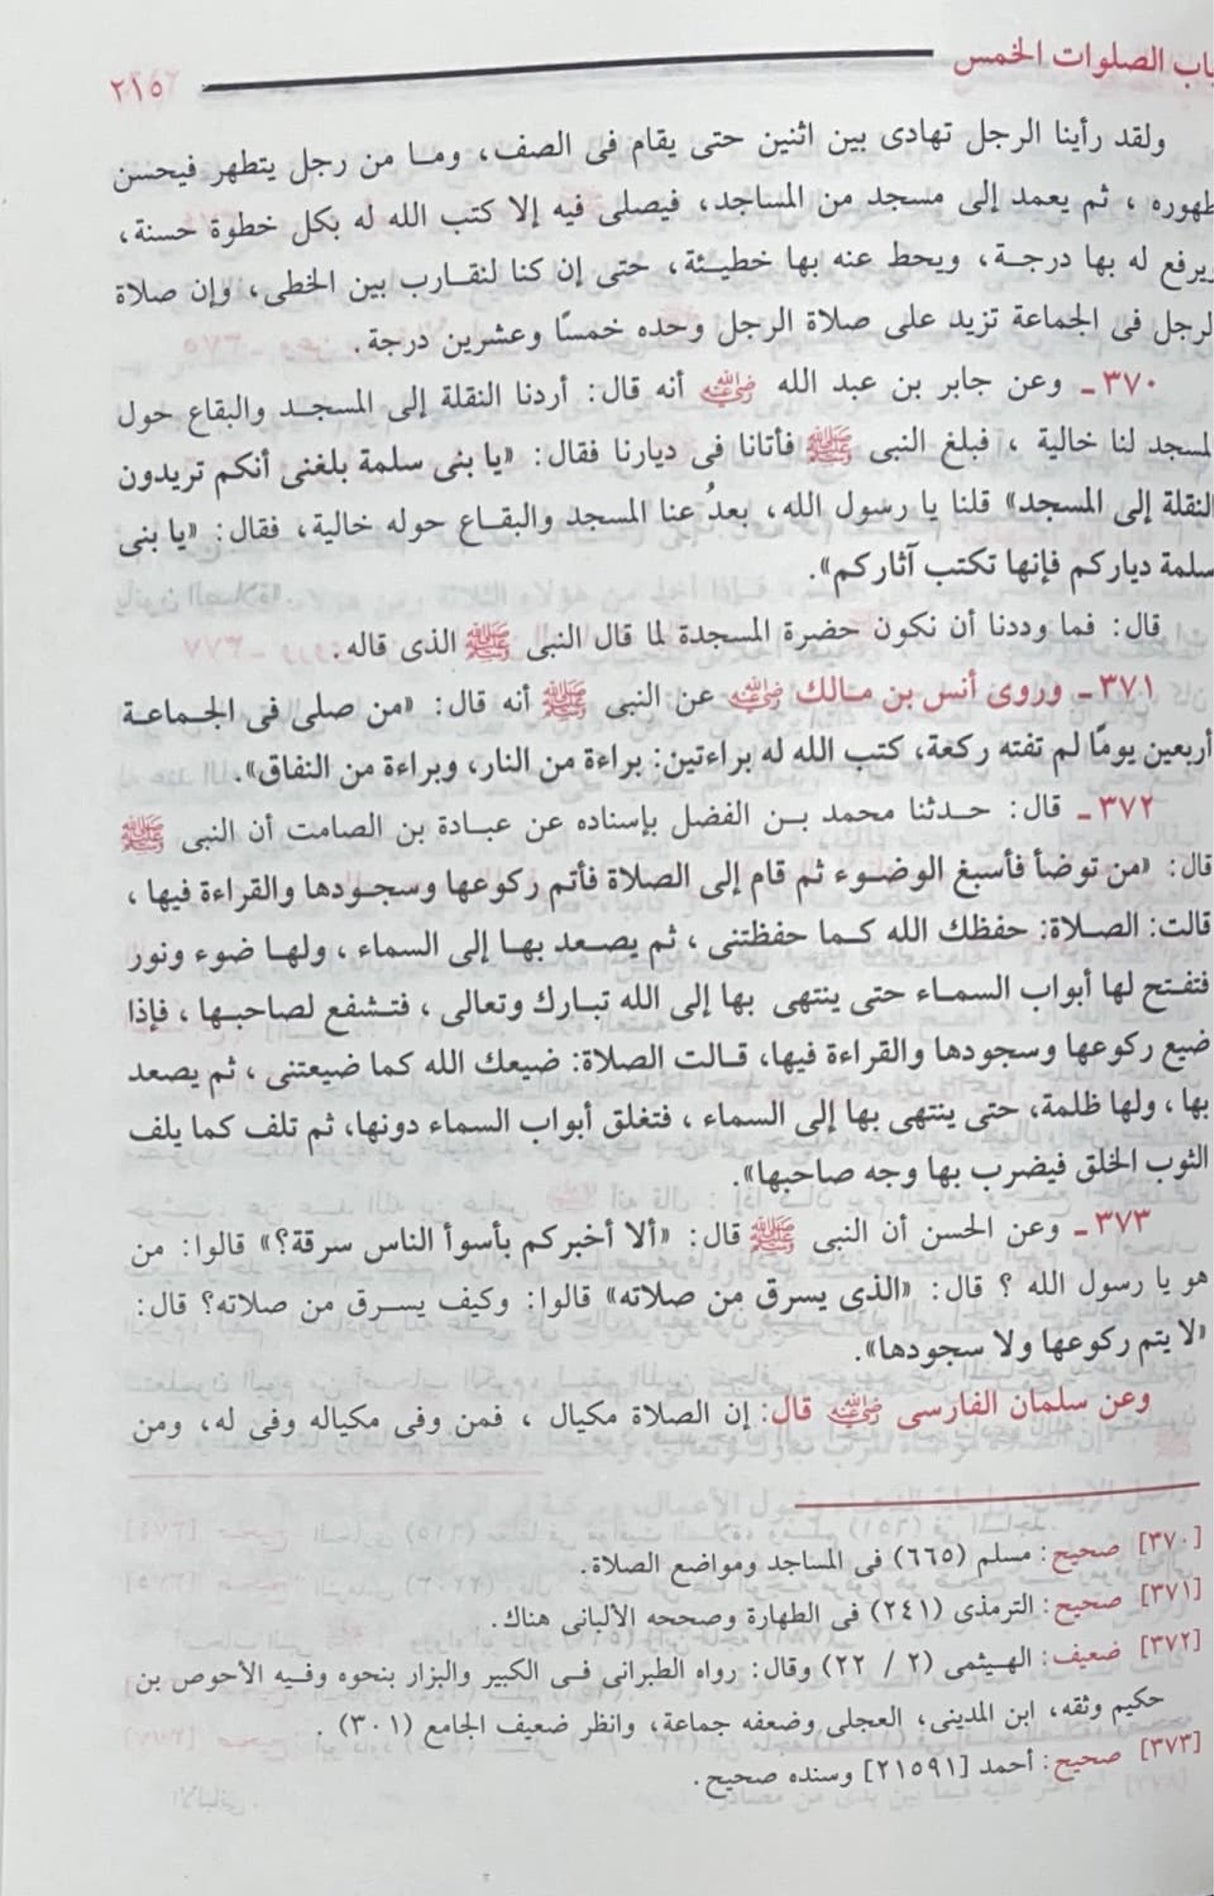 باب الصلوات الخمس ٢١٥
ولقد رأينا الرجل تهادى بين اثنين حتى يقام فى الصف، وما من رجل يتطهر فيحسن
طهوره ، ثم يعمد إلى مسجد من المساجد، فيصلى فيه إلا كتب الله له بكل خطوة حسنة،
ويرفع له بها درجة، ويحط عنه بها خطيئة، حتى إن كنا لنقارب بين الخطى، وإن صلاة
الرجل فى الجماعة تزيد على صلاة الرجل وحده خمسًا وعشرين درجة.
٣٧٠ - وعن جابر بن عبد الله رضي الله عنه أنه قال: أردنا النقلة إلى المسجد والبقاع حول
المسجد لنا خالية ، فبلغ النبى ﷺ فأتانا فى ديارنا فقال: «يا بنى سلمة بلغنى أنكم تريدون
النقلة إلى المسجد» قلنا يا رسول الله، بعدُ عنا المسجد والبقاع حوله خالية، فقال: «يا بنى
سلمة دياركم فإنها تكتب آثاركم».
قال: فما وددنا أن نكون حضرة المسجدة لما قال النبى ﷺ الذى قاله.
٣٧١ - وروى أنس بن مالك رضي الله عنه عن النبى ﷺ أنه قال: «من صلى فى الجماعة
أربعين يومًا لم تفته ركعة، كتب الله له براءتين: براءة من النار، وبراءة من النفاق».
٣٧٢ - قال: حدثنا محمد بن الفضل بإسناده عن عبادة بن الصامت أن النبى ﷺ
قال: «من توضأ فأسبغ الوضوء ثم قام إلى الصلاة فأتم ركوعها وسجودها والقراءة فيها ،
قالت: الصلاة: حفظك الله كما حفظتنى ، ثم يصعد بها إلى السماء ، ولها ضوء ونور
فتفتح لها أبواب السماء حتى ينتهى بها إلى الله تبارك وتعالى ، فتشفع لصاحبها ، فإذا
ضيع ركوعها وسجودها والقراءة فيها، قالت الصلاة: ضيعك الله كما ضيعتنى ، ثم يصعد
بها ، ولها ظلمة، حتى ينتهى بها إلى السماء ، فتغلق أبواب السماء دونها، ثم تلف كما يلف
الثوب الخلق فيضرب بها وجه صاحبها».
٣٧٣ - وعن الحسن أن النبى ﷺ قال: «ألا أخبركم بأسوأ الناس سرقة؟» قالوا: من
هو يا رسول الله ؟ قال: «الذى يسرق من صلاته» قالوا: وكيف يسرق من صلاته؟ قال:
«لا يتم ركوعها ولا سجودها».
وعن سلمان الفارسى رضي الله عنه قال: إن الصلاة مكيال ، فمن وفى مكياله وفى له، ومن
[٣٧٠] صحيح: مسلم (٦٦٥) فى المساجد ومواضع الصلاة.
[٣٧١] صحيح: الترمذى (٢٤١) فى الطهارة وصححه الألبانى هناك.
[٣٧٢] ضعيف: الهيثمى (٢ / ٢٢) وقال: رواه الطبرانى فى الكبير والبزار بنحوه وفيه الأحوص بن
حكيم وثقه، ابن المدينى، العجلى وضعفه جماعة، وانظر ضعيف الجامع (٣٠١) .
[٣٧٣] صحيح: أحمد [٢١٥٩١] وسنده صحيح.